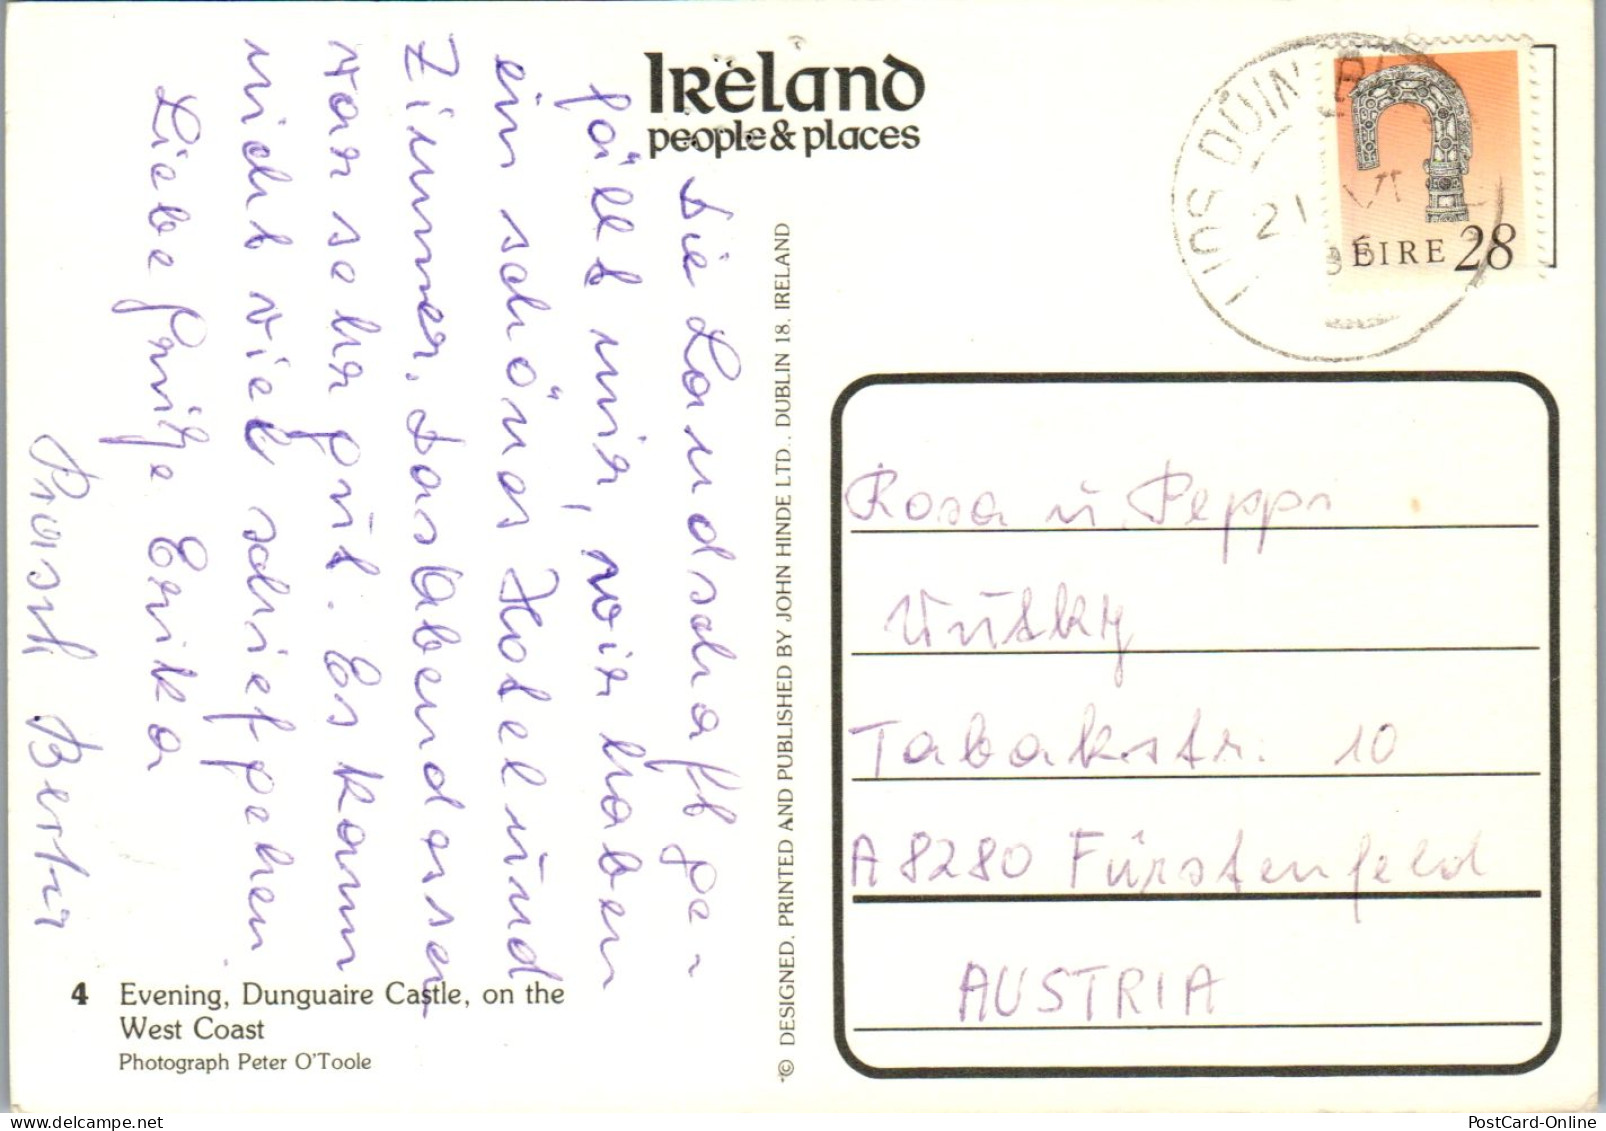 IRELAND
people & places
Die Landschaft ge-
fällt mir, wir haben
ein schönes Hotel und
Zimmer. Das Abendessen
war sehr gut. Es kann
nicht viel schiefgehen.
Liebe Grüße Erika
Prosit Berta
4 Evening, Dunguaire Castle, on the
West Coast
Photograph Peter O'Toole
© DESIGNED, PRINTED AND PUBLISHED BY JOHN HINDE LTD., DUBLIN 18, IRELAND
ÉIRE 28
21 VI
Rosa u. Peppi
Wutky
Tabakstr. 10
A 8280 Fürstenfeld
AUSTRIA
PostCard-Online